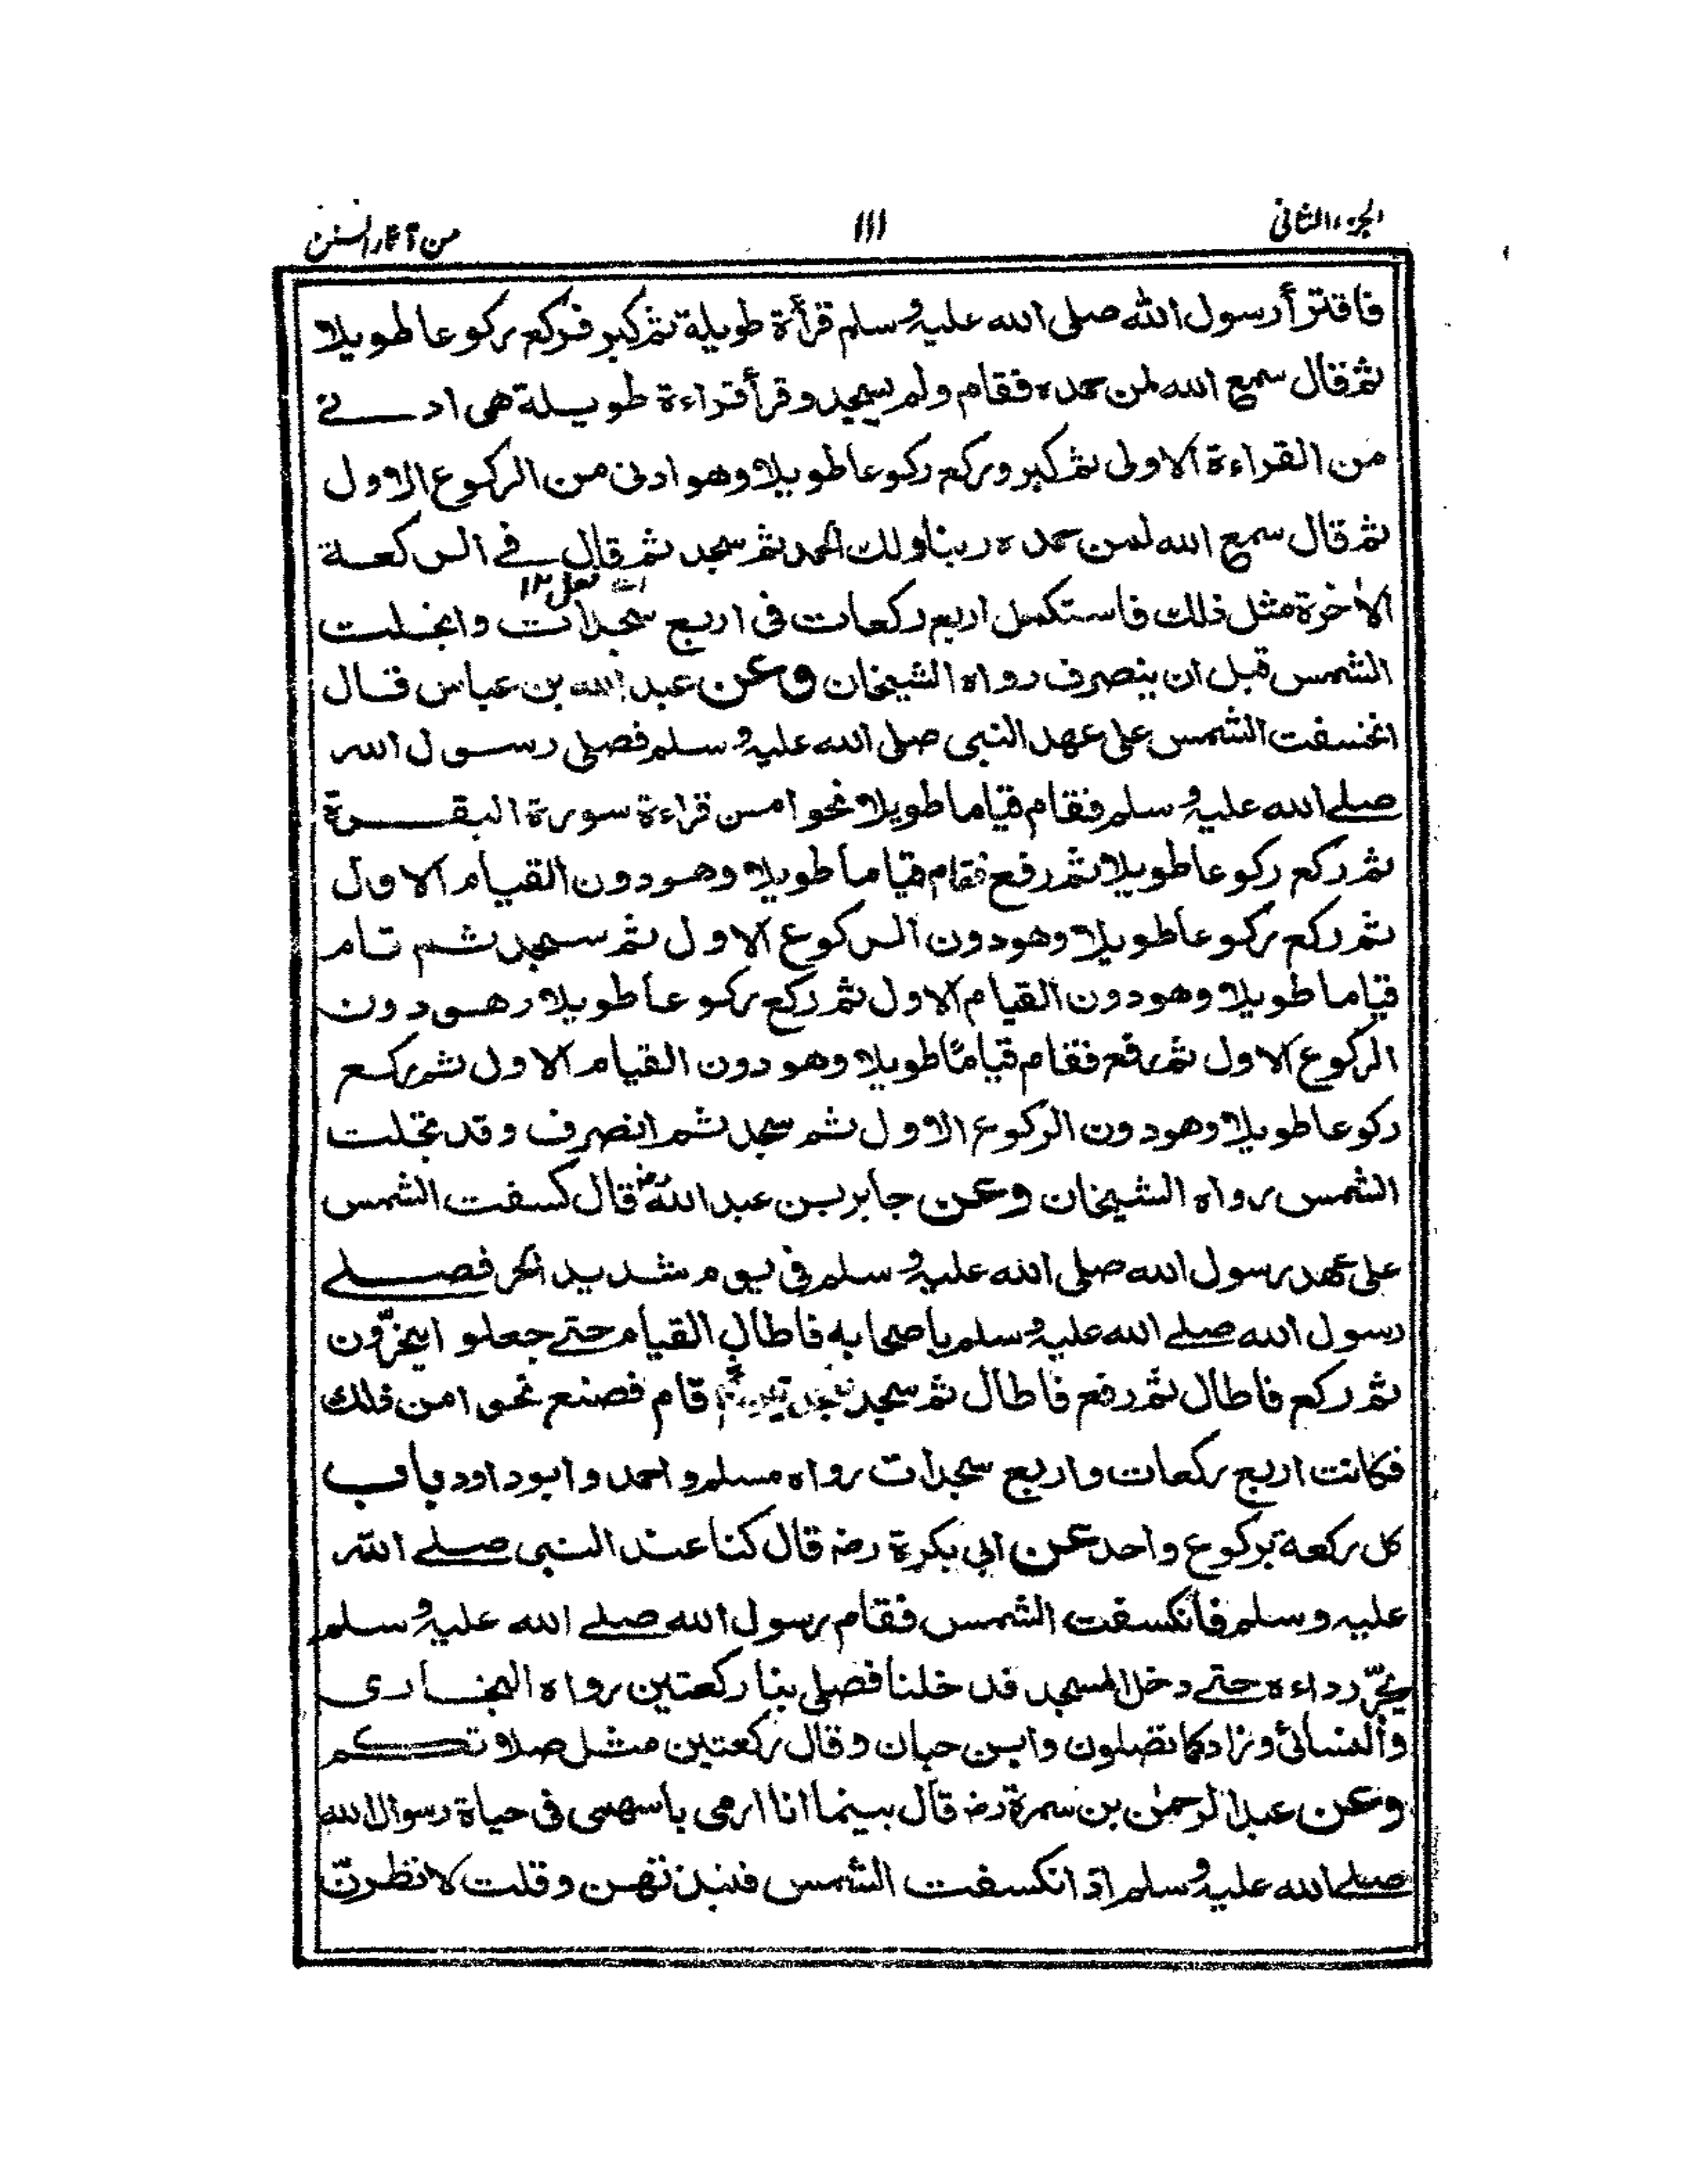 الجزء الثانى
١١١
من آثار السنن
فاقترأ رسول الله صلى الله عليه وسلم قرأة طويلة ثم كبر فركع ركوعا طويلا
ثم قال سمع الله لمن حمده فقام ولم يسجد وقرأ قراءة طويلة هى ادنے
من القراءة الاولى ثم كبر وركع ركوعا طويلا وهو ادنى من الركوع الاول
ثم قال سمع الله لمن حمده ربنا ولك الحمد ثم سجد ثم قال فے الركعة
اے فعل ١٢
الاٰخرة مثل ذلك فاستكمل اربع ركعات فى اربع سجدات وانجلت
الشمس قبل ان ينصرف رواه الشيخان وعن عبد الله بن عباس قال
انخسفت الشمس على عهد النبى صلى الله عليه وسلم فصلى رسول الله
صلے الله عليه وسلم فقام قياما طويلا نحوا من قراءة سورة البقرة
ثم ركع ركوعا طويلا ثم رفع فقام قياما طويلا وهو دون القيام الاول
ثم ركع ركوعا طويلا وهو دون الركوع الاول ثم سجد ثم قام
قياما طويلا وهو دون القيام الاول ثم ركع ركوعا طويلا وهو دون
الركوع الاول ثم رفع فقام قيامًا طويلا وهو دون القيام الاول ثم ركع
ركوعا طويلا وهو دون الركوع الاول ثم سجد ثم انصرف وقد تجلت
الشمس رواه الشيخان وعن جابر بن عبد اللهؓ قال كسفت الشمس
على عهد رسول الله صلى الله عليه وسلم فى يوم شديد الحر فصلے
رسول الله صلے الله عليه وسلم باصحابه فاطال القيام حتے جعلوا يخرّون
ثم ركع فاطال ثم رفع فاطال ثم سجد سجدتين ثم قام فصنع نحوا من ذلك
فكانت اربع ركعات واربع سجدات رواه مسلم واحمد وابوداود باب
كل ركعة بركوع واحد عن ابى بكرة رضه قال كنا عند النبى صلے الله
عليه وسلم فانكسفت الشمس فقام رسول الله صلے الله عليه وسلم
يجرّ رداءه حتے دخل المسجد فدخلنا فصلى بنا ركعتين رواه البخارى
والنسائى وزاد كما تصلون وابن حبان وقال ركعتين مثل صلاتكم
وعن عبد الرحمٰن بن سمرة رضه قال بينما انا ارمى باسهمى فى حياة رسول الله
صلے الله عليه وسلم اذ انكسفت الشمس فنبذتهن وقلت لانظرنّ